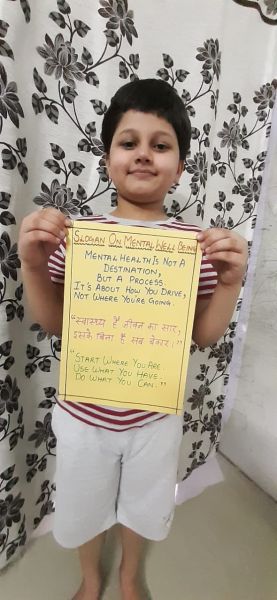 SLOGAN ON MENTAL WELL BEING
MENTAL HEALTH IS NOT A
DESTINATION,
BUT A PROCESS.
IT'S ABOUT HOW YOU DRIVE,
NOT WHERE YOU'RE GOING.
"स्वास्थ्य हैं जीवन का सार,
इसके बिना हैं सब बेकार।"
"START WHERE YOU ARE.
USE WHAT YOU HAVE.
DO WHAT YOU CAN."